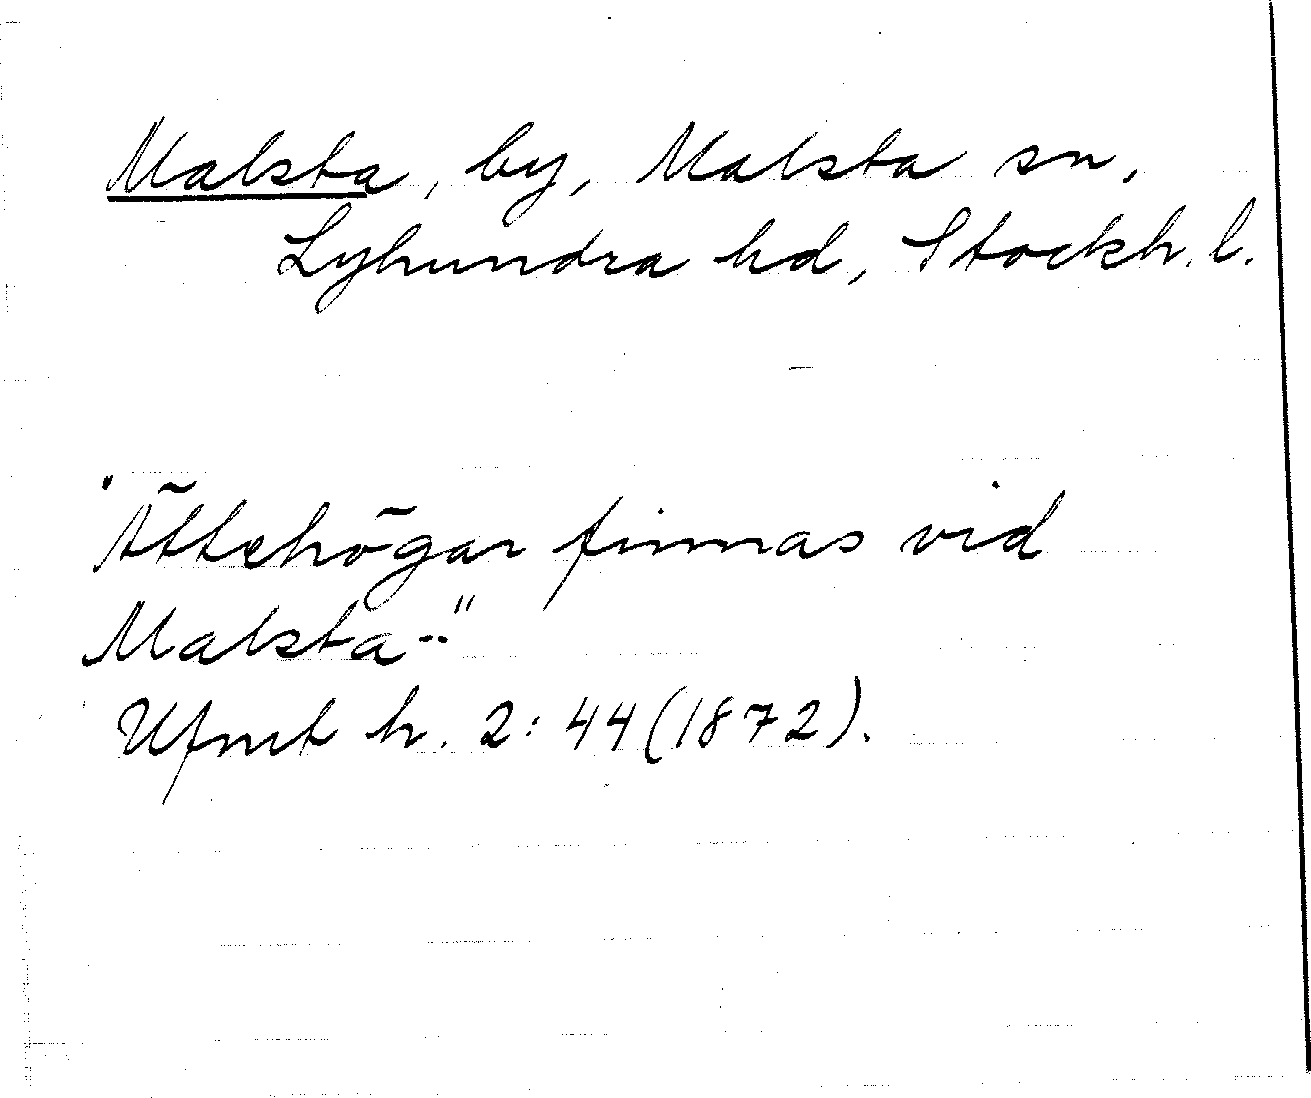 Malsta, by, Malsta sn,
Lyhundra hd, Stockh. l.
"Ättehögar finnas vid
Malsta --"
Ufmt h. 2: 44 (1872).